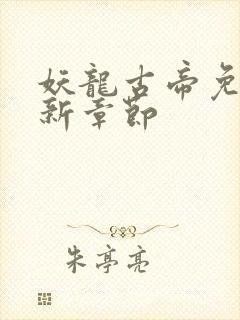 妖龍古帝免
新章節
朱亭亮